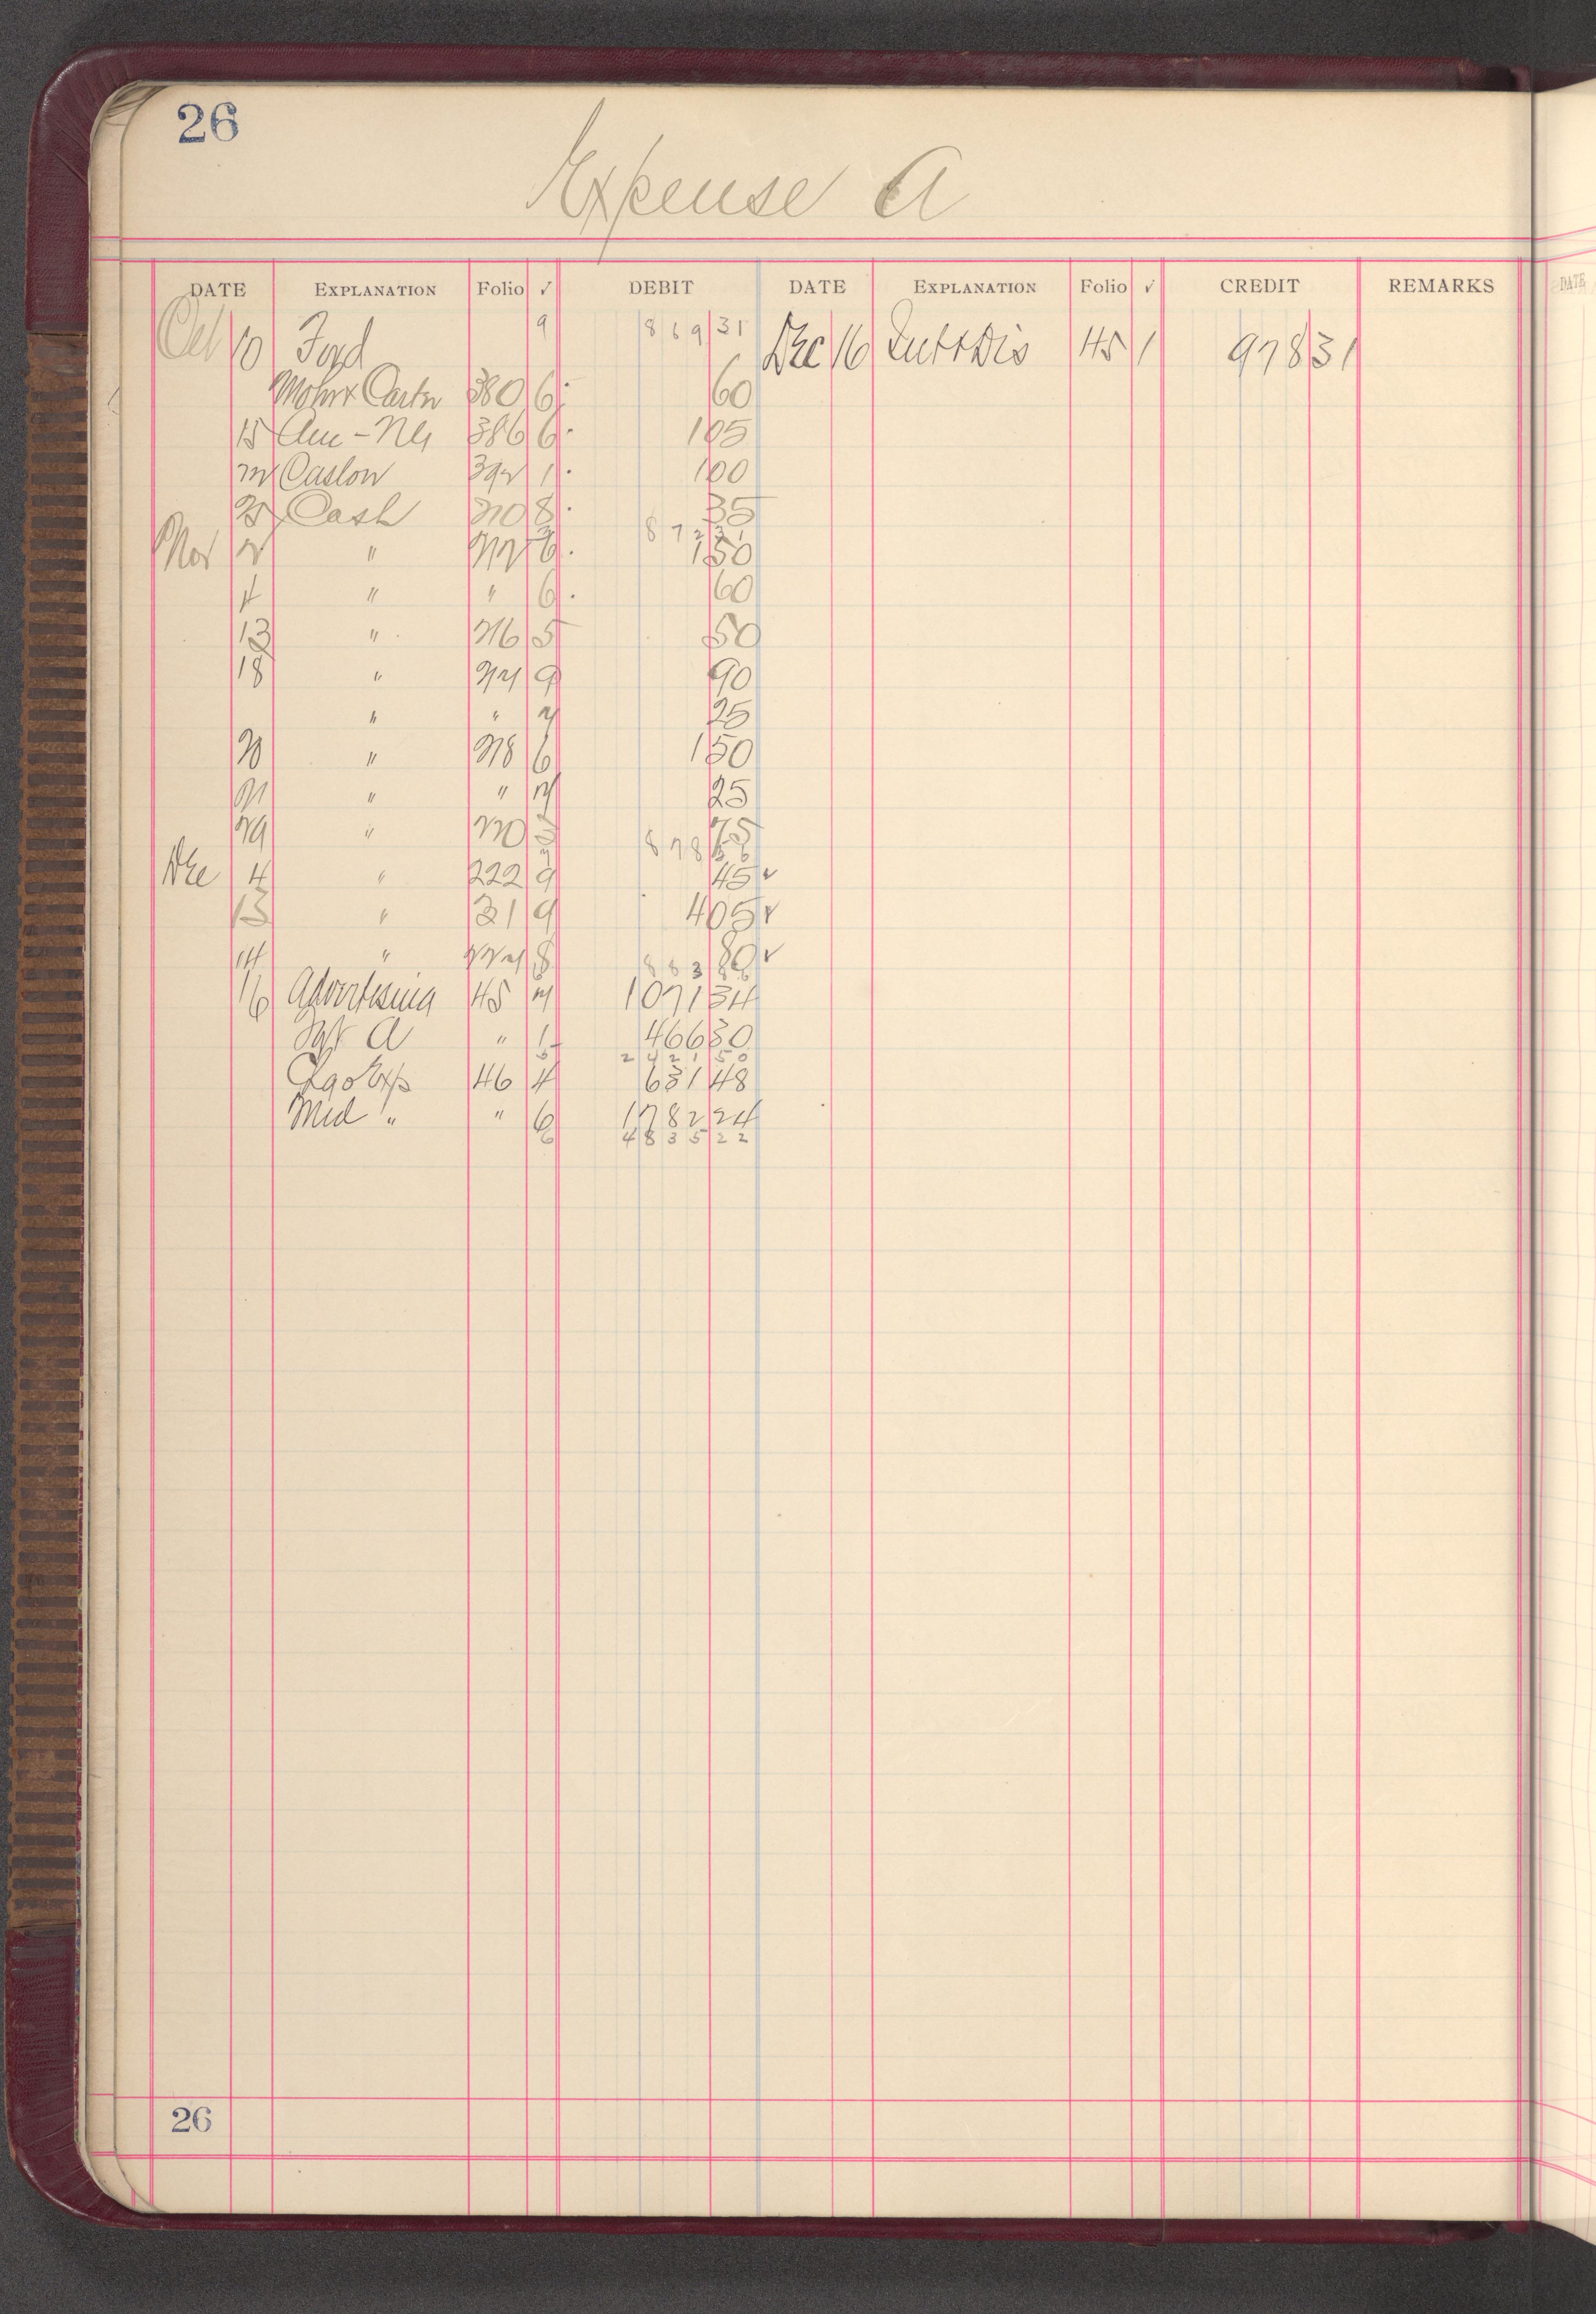 26
Expense A
DATE EXPLANATION Folio ✓ DEBIT DATE EXPLANATION Folio ✓ CREDIT REMARKS DATE
9 869 31
Oct 10 Ford Dec 16 Int + Dis 45 1 978 31
Mohr + Carter 380 6 60
15 386 6 1 05
22 Caslow 392 1 1 00
25 Cash 210 8 35
872 31
Nov 2 " 212 6 1 50
4 " " 6 60
13 " 216 5 50
18 " 217 9 90
" " 7 25
20 " 218 6 1 50
21 " " 7 25
29 " 220 3 75
878
Dec 4 " 222 9 45 ✓
13 " 31 9 4 05 ✓
14 " 227 8 80 ✓
883 86
16 Advertising 45 7 1071 34
Int A " 1 466 30
2421 50
Chgo Exp 46 4 631 48
Med " " 6 1782 24
6 4835 22
26